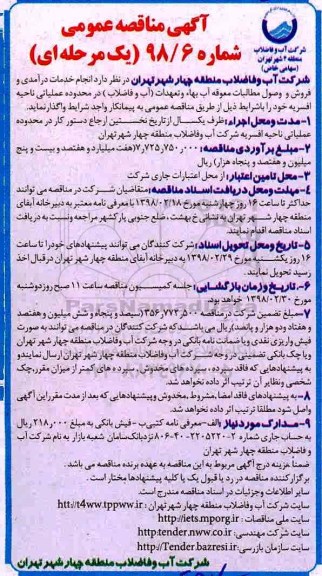 آگهی مناقصه عمومی
شماره ۹۸/۶ (یک مرحله ای)
شرکت آب و فاضلاب
منطقه ۴ شهر تهران
(سهامی خاص)
شرکت آب وفاضلاب منطقه چهار شهر تهران در نظر دارد انجام خدمات درآمدی و
فروش و وصول مطالبات معوقه آب بهاء وتعهدات (آب و فاضلاب) در محدوده عملیاتی ناحیه
افسریه خود را باشرایط ذیل از طریق مناقصه عمومی به پیمانکار واجد شرایط واگذار نماید.
۱-مدت ومحل اجراء: ظرف یکسال از تاریخ نخستین ارجاع دستور کار در محدوده
عملیاتی ناحیه افسریه شرکت آب وفاضلاب منطقه چهار شهر تهران
۲-مبلغ برآوردی مناقصه: ۷٫۷۲۵٫۰۵۰٫۰۰۰ (هفت میلیارد و هفتصد و بیست و پنج
میلیون و هفتصد و پنجاه هزار) ریال
۳-محل تامین اعتبار: از محل اعتبارات جاری شرکت
۴-مهلت ومحل دریافت اسناد مناقصه: متقاضیان شرکت در مناقصه می توانند
حداکثر تا ساعت ۱۶ روز چهارشنبه مورخ ۱۳۹۸/۰۲/۱۸ با معرفی نامه معتبر به دبیرخانه آبفای
منطقه چهار شهر تهران به نشانی خ بهشت، ضلع جنوبی پارکشهر مراجعه ونسبت به دریافت
اسناد مناقصه اقدام نمایند.
۵-تاریخ ومحل تحویل اسناد: شرکت کنندگان می توانند پیشنهادهای خود را تا ساعت
۱۶ روز یکشنبه مورخ ۱۳۹۸/۰۲/۲۹ به دبیرخانه آبفای منطقه چهار شهر تهران در قبال اخذ
رسید تحویل نمایند.
۶-تاریخ وزمان بازگشایی: جلسه کمیسیون مناقصه ساعت ۱۱ صبح روز دوشنبه
مورخ ۱۳۹۸/۰۲/۳۰ خواهد بود.
۷-مبلغ تضمین شرکت در مناقصه ۳۵۶٫۷۷۲٫۵۰۰ (سیصد و پنجاه و شش میلیون و هفتصد
و هفتاد ودو هزار و پانصد) ریال می باشد که شرکت کنندگان در مناقصه می توانند به صورت
فیش واریزی نقدی ویا ضمانت نامه بانکی در وجه شرکت آب وفاضلاب منطقه چهار شهر تهران
ویا چک بانکی تضمینی در وجه شرکت آب وفاضلاب منطقه چهار شهر تهران ارسال نمایند و
به پیشنهادهایی که فاقد سپرده، سپرده های مخدوش، سپرده های کمتر از میزان مقرر، چک
شخصی ونظایر آن ترتیب اثر داده نخواهد شد.
۸-به پیشنهادهای فاقد امضا، مشروط، مخدوش وپیشنهادهایی که بعد از مدت مقرر این آگهی
واصل شود مطلقا ترتیب اثر داده نخواهد شد.
۹-مدارک مورد نیاز والف-معرفی نامه کتبی ب- فیش بانکی به مبلغ ۲۱۸٫۰۰۰ ریال
به حساب جاری شماره نزد بانک سامان شعبه بازار به نام شرکت آب
و فاضلاب منطقه چهار شهر تهران
ضمنا، هزینه درج آگهی مربوط به این مناقصه به عهده برنده مناقصه می باشد.
برگزار کننده مناقصه در رد یا قبول یک یا کلیه پیشنهادها مختار است.
سایر اطلاعات وجزئیات در اسناد مناقصه مندرج است.
سایت شرکت آب وفاضلاب منطقه چهار شهر تهران : htt://t4ww.tppww.ir
سایت ملی مناقصات : http://iets.mporg.ir
سایت شرکت مهندسی: http:tender.nww.co.ir
سایت سازمان بازرسی: http://Tender.bazresi.ir
شرکت آب وفاضلاب منطقه چهار شهر تهران